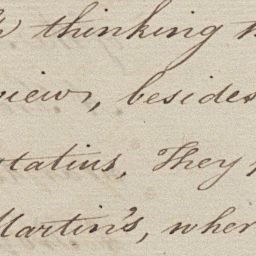 thinking
views, besides
statius, They
Martin's, wher